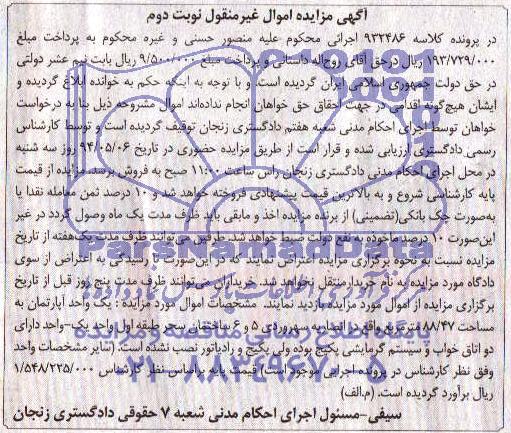 آگهی مزایده اموال غیرمنقول نوبت دوم
در پرونده کلاسه ۹۳۲۴۸۶ اجرائی محکوم علیه منصور حسنی و غیره محکوم به پرداخت مبلغ
۱۹۳/۷۲۹/۰۰۰ ریال درحق آقای روح‌اله داستانی و پرداخت مبلغ ۹/۵۰۰/۰۰۰ ریال بابت نیم عشر دولتی
در حق دولت جمهوری اسلامی ایران گردیده است. و با توجه به اینکه حکم به خوانده ابلاغ گردیده و
ایشان هیچ‌گونه اقدامی در جهت احقاق حق خواهان انجام نداده‌اند اموال مشروحه ذیل بنا به درخواست
خواهان توسط اجرای احکام مدنی شعبه هفتم دادگستری زنجان توقیف گردیده است و توسط کارشناس
رسمی دادگستری ارزیابی شده و قرار است از طریق مزایده حضوری در تاریخ ۹۴/۰۵/۰۶ روز سه شنبه
در محل اجرای احکام مدنی دادگستری زنجان راس ساعت ۱۱:۰۰ صبح به فروش برسد مزایده از قیمت
پایه کارشناسی شروع و به بالاترین قیمت پیشنهادی فروخته خواهد شد و ۱۰ درصد ثمن معامله نقدا یا
به‌صورت چک بانکی(تضمینی) از برنده مزایده اخذ و مابقی باید ظرف مدت یک ماه وصول گردد در غیر
این‌صورت ۱۰ درصد ماخوذه به نفع دولت ضبط خواهد شد. طرفین می‌توانند ظرف مدت یک‌هفته از تاریخ
مزایده نسبت به نحوه برگزاری مزایده اعتراض نمایند که در این‌صورت تا رسیدگی به اعتراض از سوی
دادگاه مورد مزایده به نام خریدار منتقل نخواهد شد. خریداران می‌توانند ظرف مدت پنج روز قبل از تاریخ
برگزاری مزایده از اموال مورد مزایده بازدید نمایند. مشخصات اموال مورد مزایده : یک واحد آپارتمان به
مساحت ۸۸/۴۷ مترمربع واقع در انصاریه سهروردی ۵ و ۶ ساختمان سحر طبقه اول واحد یک-واحد دارای
دو اتاق خواب و سیستم گرمایشی پکیج بوده ولی پکیج و رادیاتور نصب نشده است. (سایر مشخصات واحد
وفق نظر کارشناس در پرونده اجرایی موجود است) قیمت پایه براساس نظر کارشناس ۱/۵۴۸/۲۲۵/۰۰۰
ریال برآورد گردیده است. (م.الف)
سیفی-مسئول اجرای احکام مدنی شعبه ۷ حقوقی دادگستری زنجان
ParsNamadData
۰۲۱-۸۸۳۴۹۶۷۰-۵